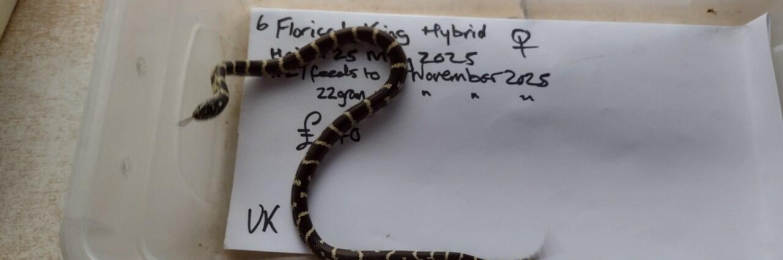 6 Florida King Hybrid ♀
25 May 2025
feeds to November 2025
22gram " " "
£
UK